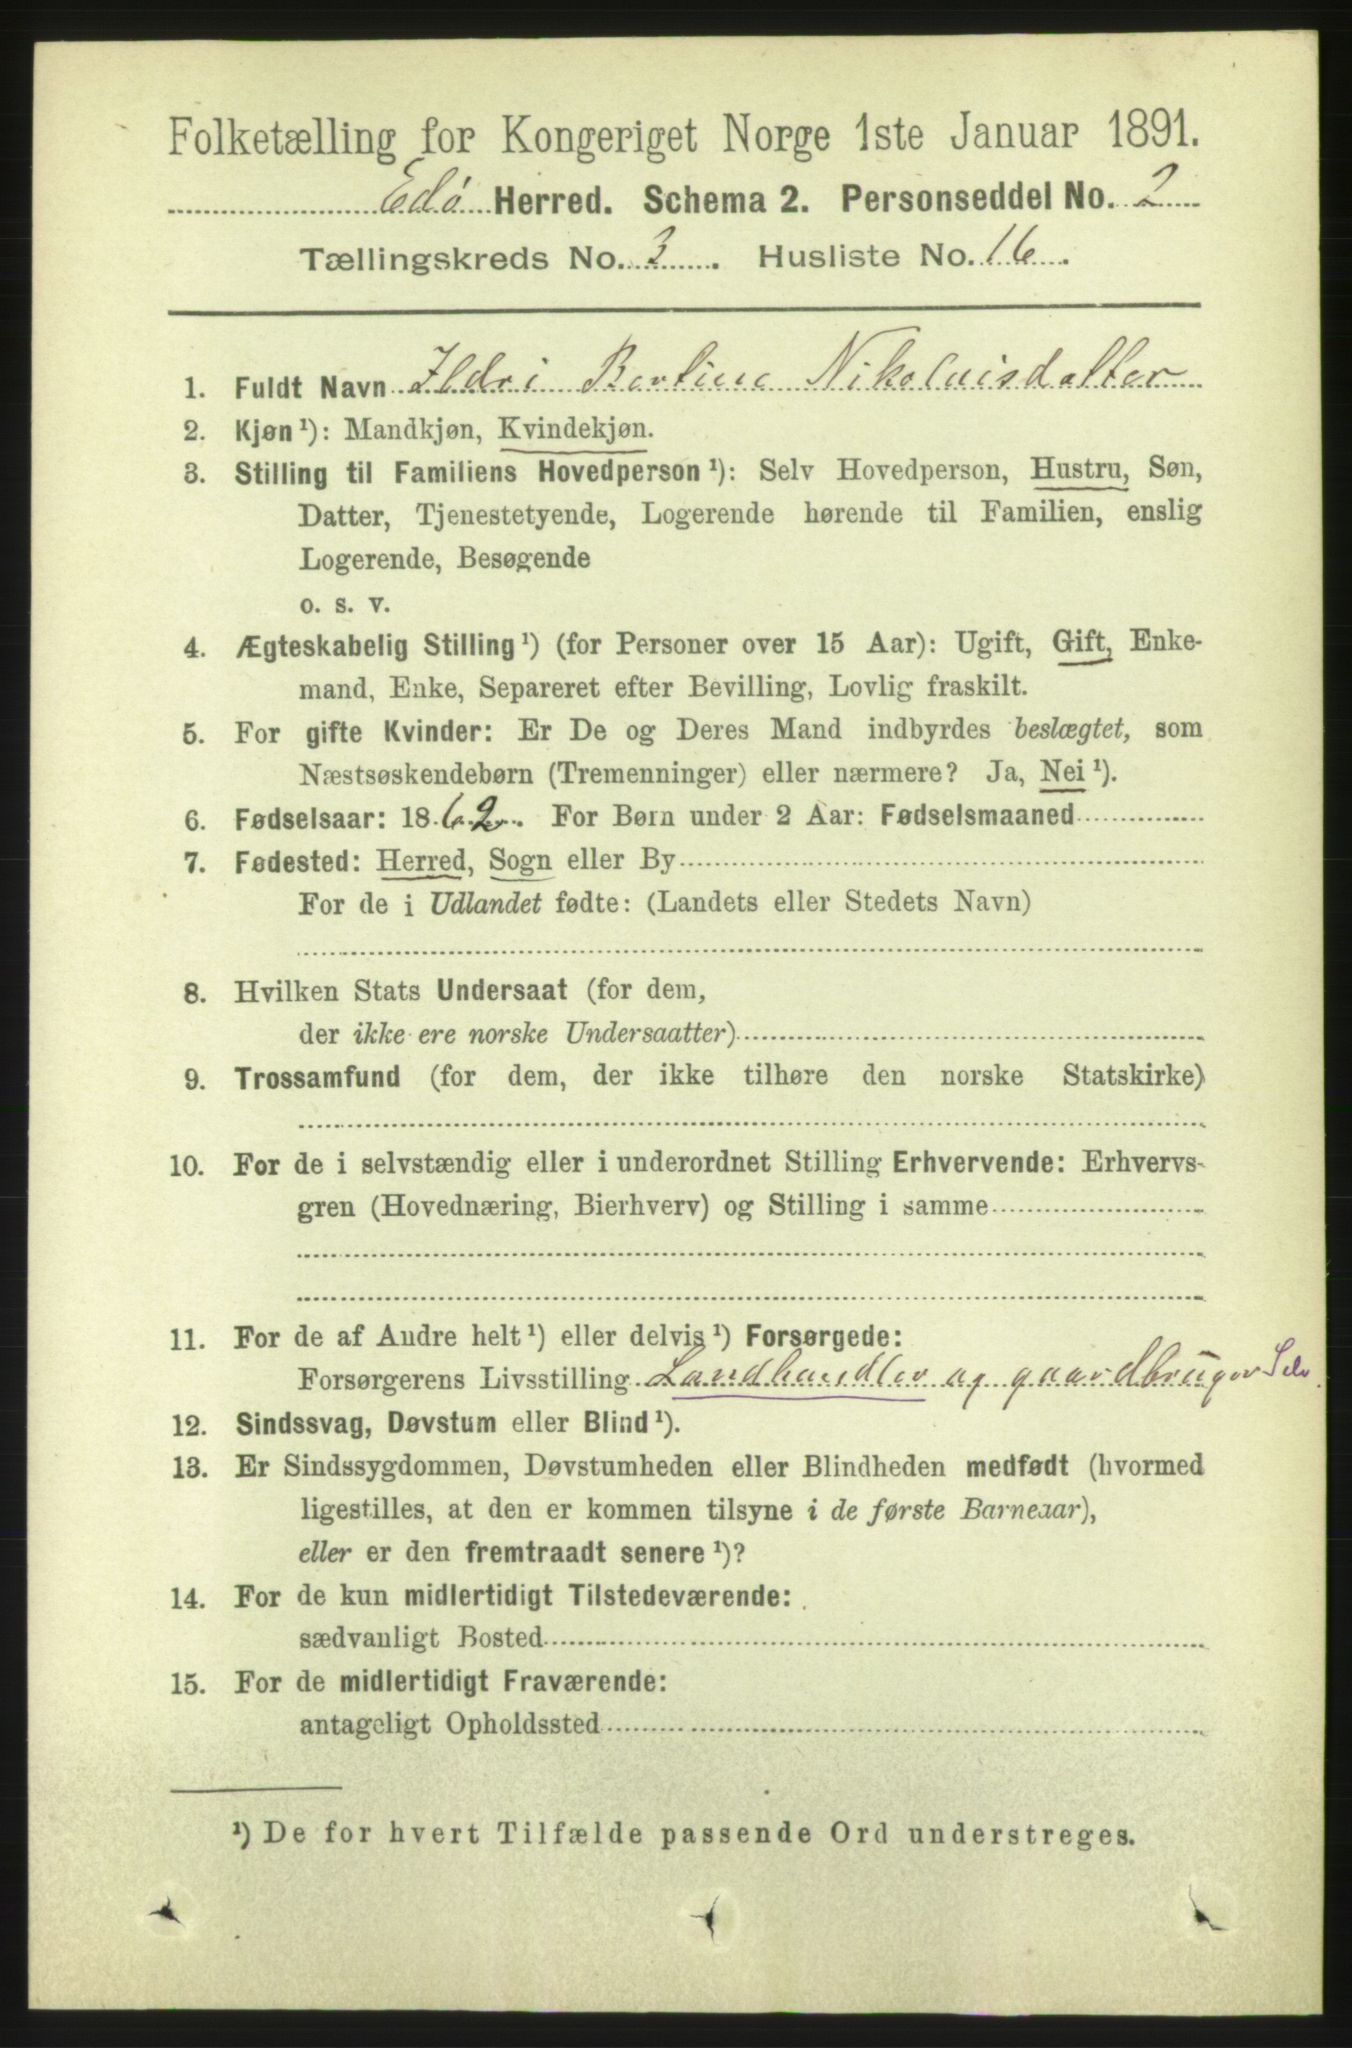 Folketælling for Kongeriget Norge 1ste Januar 1891.
Edø Herred. Schema 2. Personseddel No. 2
Tællingskreds No. 3. Husliste No. 16.
1. Fuldt Navn Ildri Bertine Nikolaisdatter
2. Kjøn ¹): Mandkjøn, Kvindekjøn.
3. Stilling til Familiens Hovedperson ¹): Selv Hovedperson, Hustru, Søn,
Datter, Tjenestetyende, Logerende hørende til Familien, enslig
Logerende, Besøgende
o. s. v.
4. Ægteskabelig Stilling ¹) (for Personer over 15 Aar): Ugift, Gift, Enke-
mand, Enke, Separeret efter Bevilling, Lovlig fraskilt.
5. For gifte Kvinder: Er De og Deres Mand indbyrdes beslægtet, som
Næstsøskendebørn (Tremenninger) eller nærmere? Ja, Nei ¹).
6. Fødselsaar: 1862. For Børn under 2 Aar: Fødselsmaaned
7. Fødested: Herred, Sogn eller By
For de i Udlandet fødte: (Landets eller Stedets Navn)
8. Hvilken Stats Undersaat (for dem,
der ikke ere norske Undersaatter)
9. Trossamfund (for dem, der ikke tilhøre den norske Statskirke)
10. For de i selvstændig eller i underordnet Stilling Erhvervende: Erhvervs-
gren (Hovednæring, Bierhverv) og Stilling i samme
11. For de af Andre helt ¹) eller delvis ¹) Forsørgede:
Forsørgerens Livsstilling Landhandler og gaardbruger Selv
12. Sindssvag, Døvstum eller Blind ¹).
13. Er Sindssygdommen, Døvstumheden eller Blindheden medfødt (hvormed
ligestilles, at den er kommen tilsyne i de første Barneaar),
eller er den fremtraadt senere ¹)?
14. For de kun midlertidigt Tilstedeværende:
sædvanligt Bosted
15. For de midlertidigt Fraværende:
antageligt Opholdssted
¹) De for hvert Tilfælde passende Ord understreges.